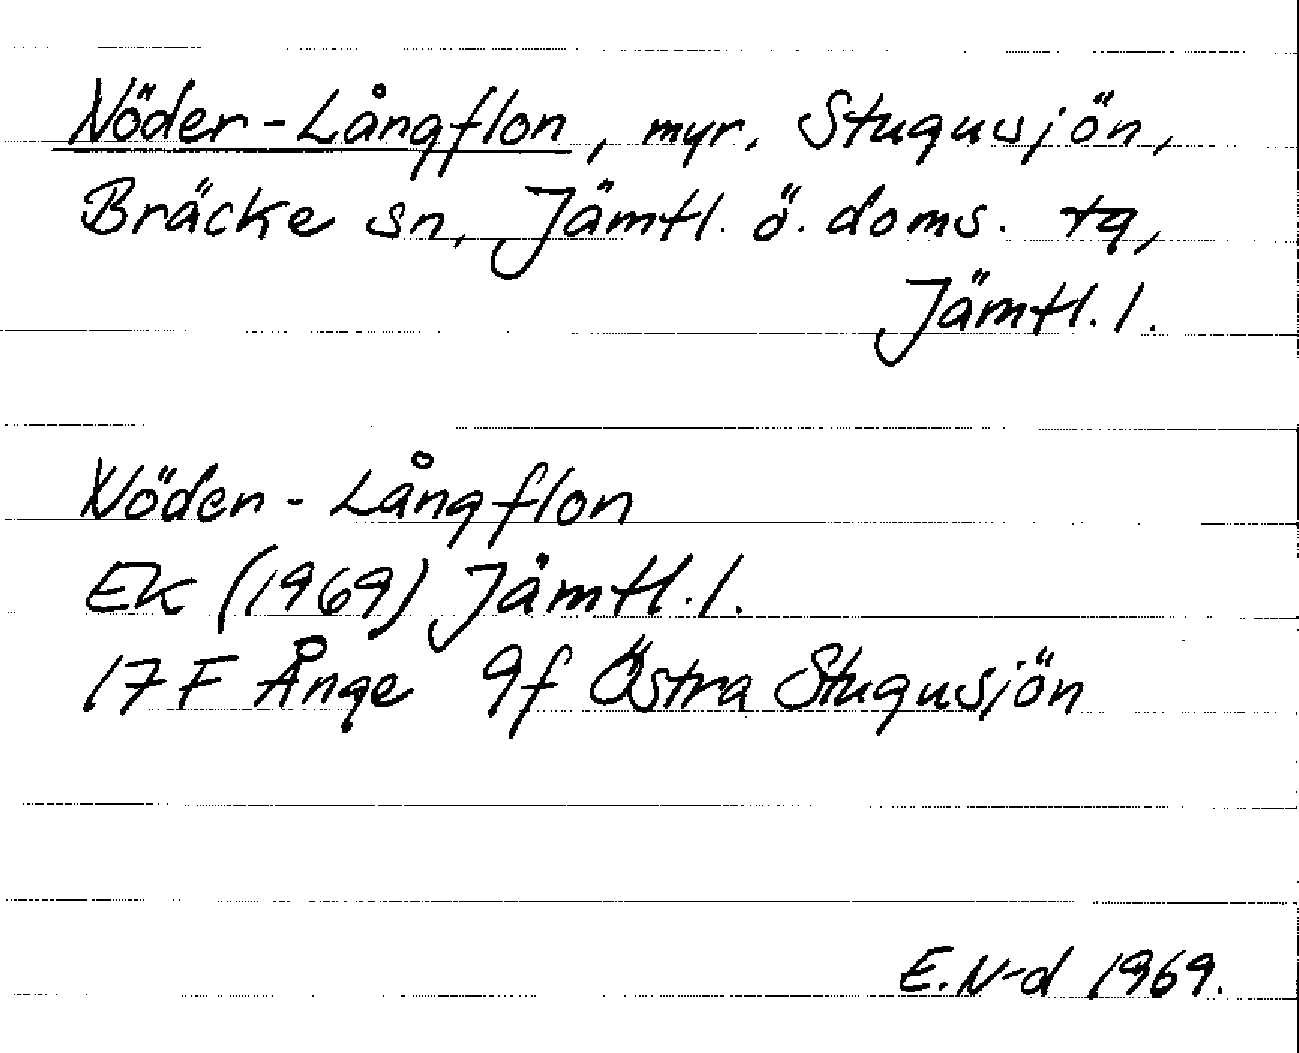 Nöder-Långflon, myr. Stugusjön,
Bräcke sn, Jämtl. ö. doms. tg,
Jämtl. l.
Nöder-Långflon
EK (1969) Jämtl. l.
17 F Ånge 9f Östra Stugusjön
E.N-d 1969.